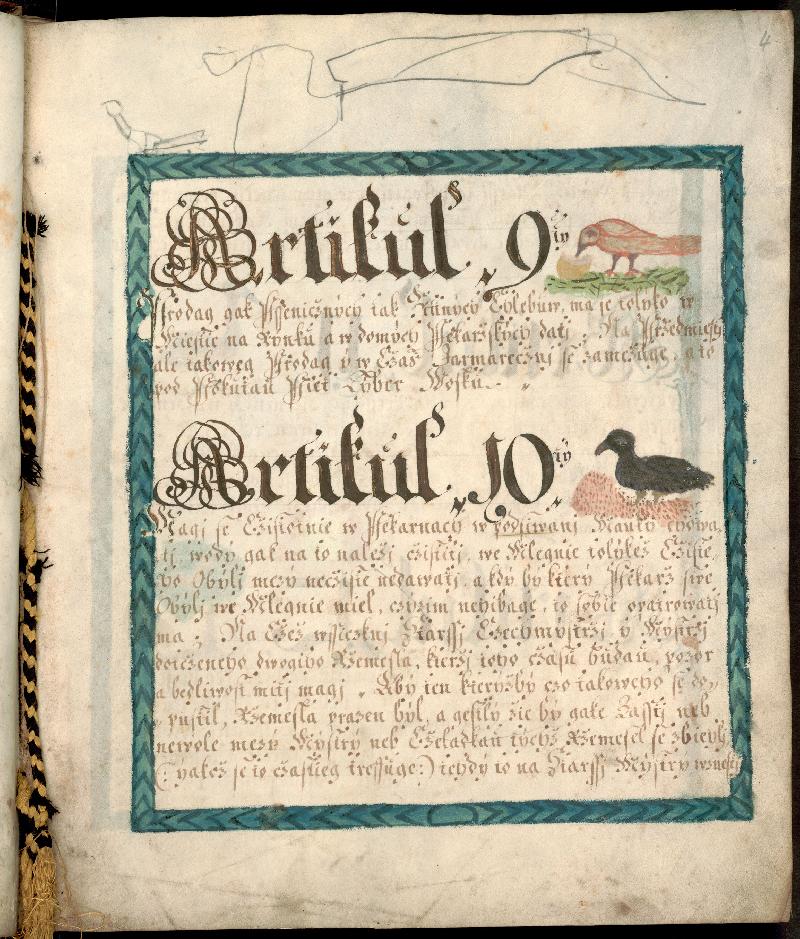 4
Artikul 9tý
Prodag gak Pssenicznych tak Ržitnych Chlebuw, ma se toliko w
Miestie na Rynku a w domych Pekaržskych dati. Na Pržedmiesti
ale takoweg Prodag y w Czas Jarmareczni se zamezuge, a to
pod Pokutau Pieti Liber Wosku.
Artikul 10tý
Magi se Czistotnie w Pekarnach w podsiwani Mauky chowa-
ti, wody gak na to należi czistiti, we Mlegnie toliкеż Cziste-
ho Obyli mezy necziste nedawati, a kdy by ktery Pekarż swe
Obyli we Mlegnie miel, czyzim nehibage, to sobie opatrowati
ma, Na Czeż wssiczkni Starssi Czechmystrżi y Mystrżi
dotczeneho dwogiho Rżemesla, kterżi toho cżasu budau, pozor
a bedliwost miti magi. Aby ten kteryżby czo takoweho se do-
pustil, Rżemesla prazen byl, a gestli żie by gake Zassti neb
newole mezy Mystry neb Czeladkau tychż Rżemesel se zbiehli
(: yakoż se to cżastieg treffuge:) tehdy to na Starssi Mystry wznesti